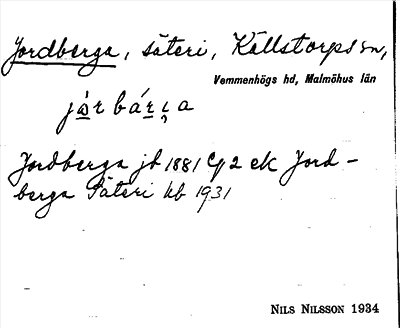 Jordberga, säteri, Källstorps sn,
Vemmenhögs hd, Malmöhus län
Jordberga jb 1881 C/2 ek Jord-
berga Säteri kb 1931
NILS NILSSON 1934